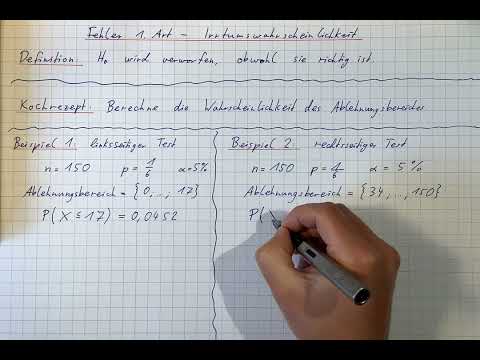 Fehler 1. Art - Irrtumswahrscheinlichkeit
Definition: H₀ wird verworfen, obwohl sie richtig ist.
Kochrezept: Berechne die Wahrscheinlichkeit des Ablehnungsbereiches
Beispiel 1: linksseitiger Test
n = 150 p = 1/6 α = 5%
Ablehnungsbereich = {0, .., 17}
P(X ≤ 17) = 0,0452
Beispiel 2: rechtsseitiger Test
n = 150 p = 1/6 α = 5%
Ablehnungsbereich = {34, .., 150}
P(